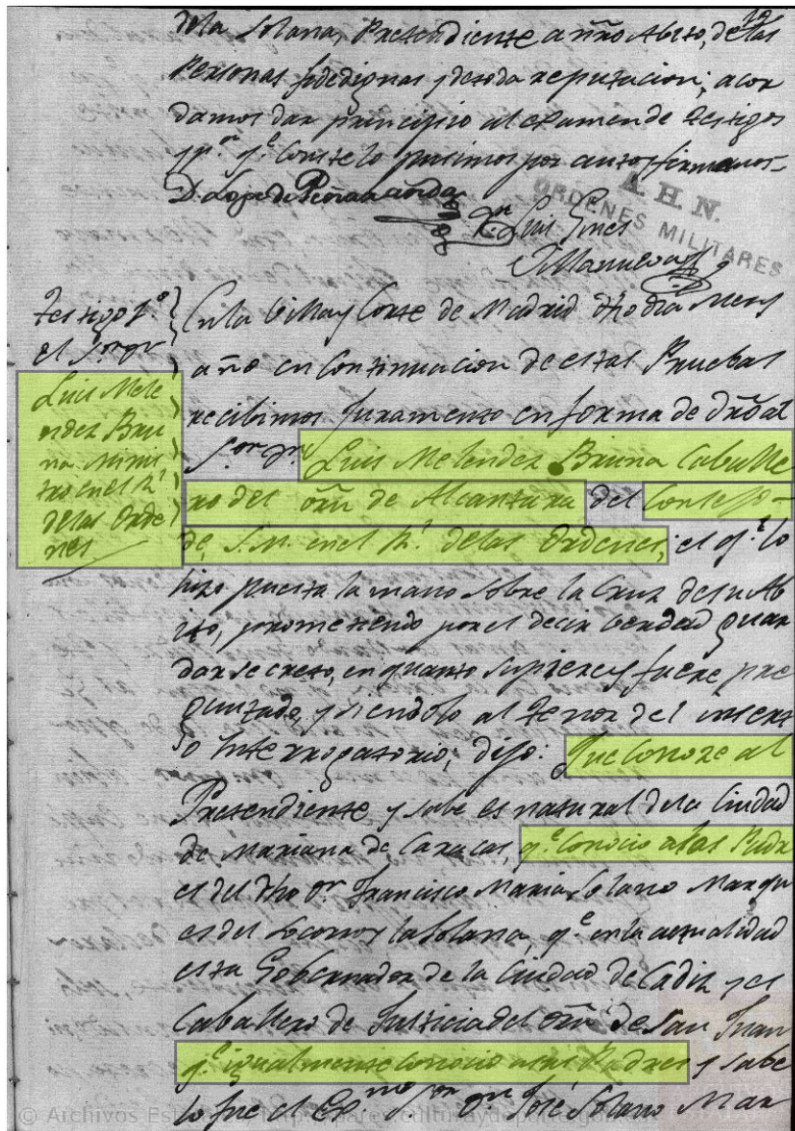 19
dela Solana, Pretendiente a nro Abito, de las
Personas fidedignas y de toda reputacion; acor
damos dar principio al examen de testigos
y pr. qe. Conste lo pusimos por auto y firmamos-
D. Lope de Peñaranda
Dn Luis Gines
Villanueva
A. H. N.
ORDENES MILITARES
Testigo 1o.
el Sor Dn
Luis Mele
ndez Bru
na Minis
tro en el Rl.
de las Orde
nes
En la Villa y Corte de Madrid dho dia Mes y
año en Continuacion de estas Pruebas
recibimos juramento en forma de dro al
Sor Dn Luis Melendez Bruna Caballe
ro del orn de Alcantara del Consejo-
de S.M. en el Rl. delas Ordenes, el qe. lo
hizo puesta la mano sobre la Cruz de su Ab
ito, prometiendo por el decir berdad guar
dar secreto, en quanto supiere y fuere pre
guntado, y siendolo al tenor del insert
o Interrogatorio, dijo: Que Conoze al
Pretendiente y sabe es natural dela Ciudad
de Mariana de Caracas, qe. Conocio alos Padr
es del dho Dn Francisco Maria Solano Marqu
es del Socorro y la Solana, qe en la actualidad
esta Gobernador de la Ciudad de Cadiz y es
Caballero de Justicia del orn de San Juan
qe. igualmente conocio a sus Padres y sabe
lo fue el Exmo Sor Dn José Solano Mar
© Archivos Estatales, http://pares.culturaydeporte.gob.es